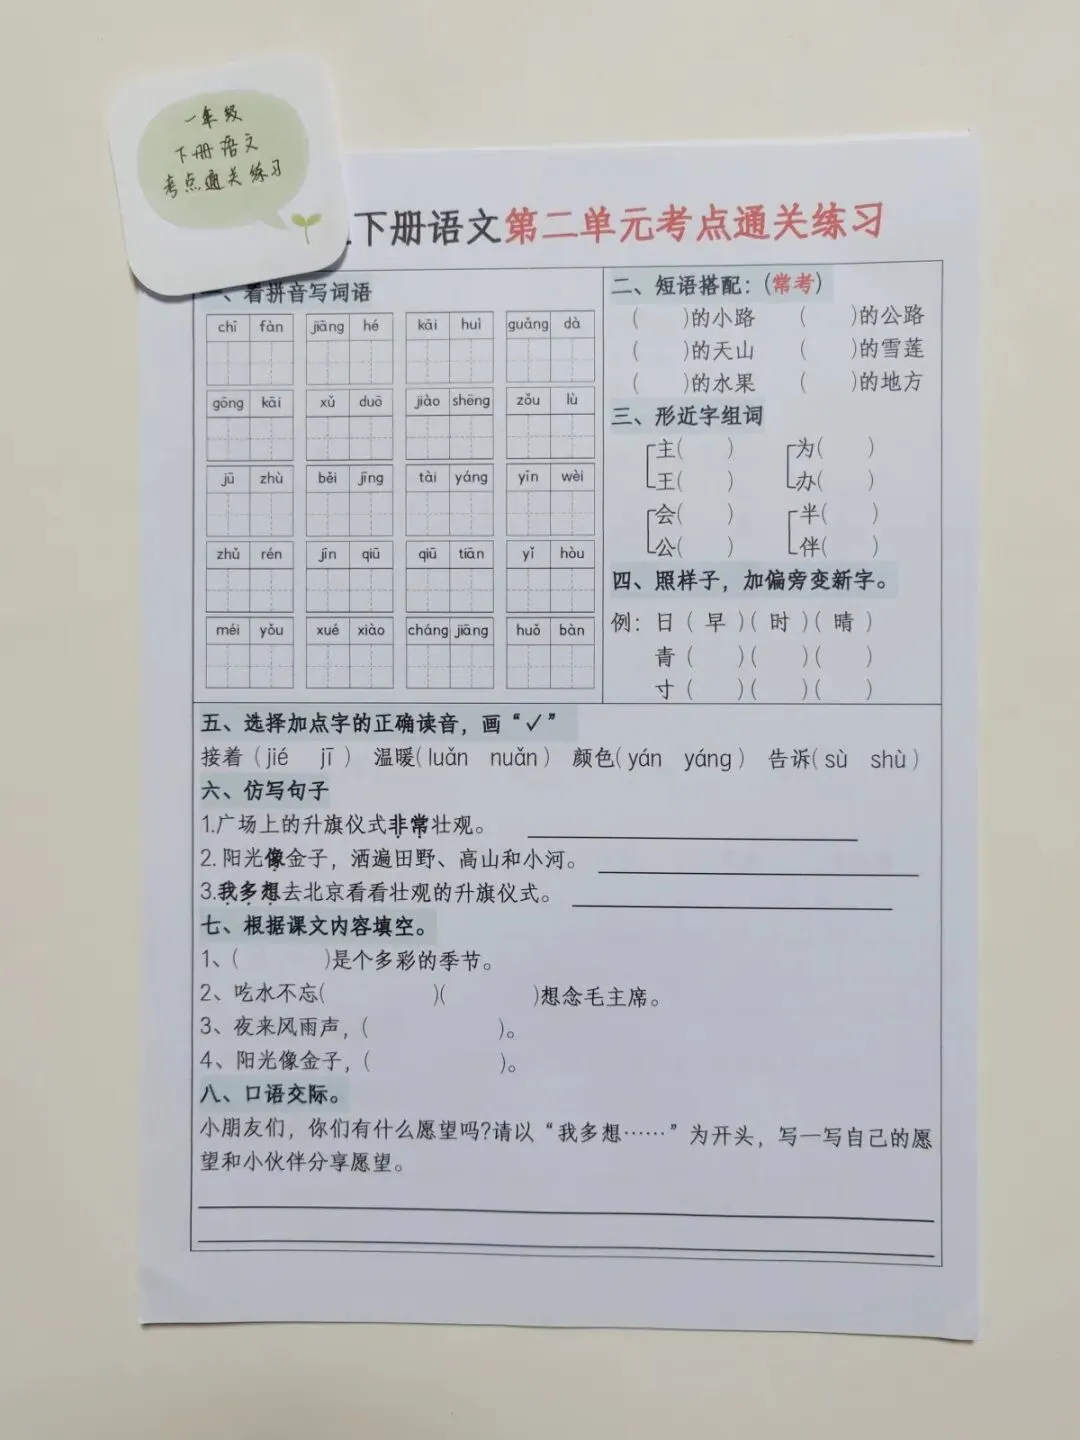 一年级
下册语文
考点通关练习
下册语文第二单元考点通关练习
一、看拼音写词语
chī fàn jiāng hé kāi huì guǎng dà
gōng kāi xǔ duō jiào shēng zǒu lù
jū zhù běi jīng tài yáng yīn wèi
zhǔ rén jīn qiū qiū tiān yǐ hòu
méi yǒu xué xiào cháng jiāng huǒ bàn
二、短语搭配：(常考)
( )的小路 ( )的公路
( )的天山 ( )的雪莲
( )的水果 ( )的地方
三、形近字组词
主( ) 为( )
王( ) 办( )
会( ) 半( )
公( ) 伴( )
四、照样子，加偏旁变新字。
例：日( 早 )( 时 )( 晴 )
青( )( )( )
寸( )( )( )
五、选择加点字的正确读音，画“✓”
接着(jié jī) 温暖(luǎn nuǎn) 颜色(yán yáng) 告诉(sù shù)
六、仿写句子
1.广场上的升旗仪式非常壮观。
2.阳光像金子，洒遍田野、高山和小河。
3.我多想去北京看看壮观的升旗仪式。
七、根据课文内容填空。
1、( )是个多彩的季节。
2、吃水不忘( )( )想念毛主席。
3、夜来风雨声，( )。
4、阳光像金子，( )。
八、口语交际。
小朋友们，你们有什么愿望吗?请以“我多想……”为开头，写一写自己的愿
望和小伙伴分享愿望。